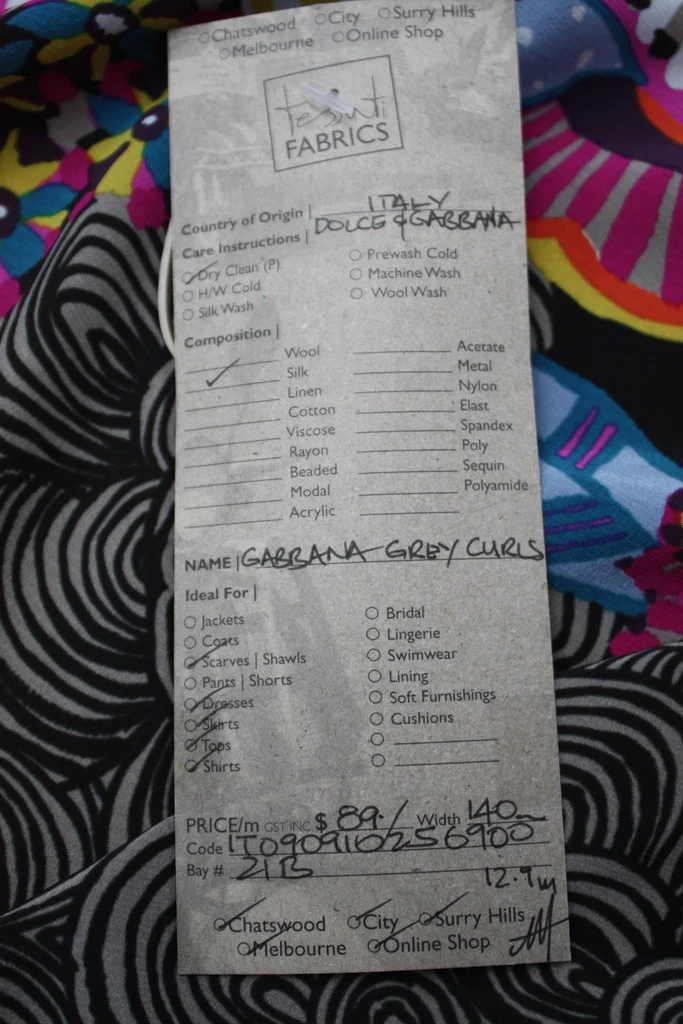 Chatswood City Surry Hills
Melbourne Online Shop
tessuti
FABRICS
Country of Origin | ITALY
DOLCE & GABBANA
Care Instructions |
Dry Clean (P) Prewash Cold
H/W Cold Machine Wash
Silk Wash Wool Wash
Composition |
Wool Acetate
Silk Metal
Linen Nylon
Cotton Elast
Viscose Spandex
Rayon Poly
Beaded Sequin
Modal Polyamide
Acrylic
NAME | GABBANA GREY CURLS
Ideal For |
Jackets Bridal
Coats Lingerie
Scarves | Shawls Swimwear
Pants | Shorts Lining
Dresses Soft Furnishings
Skirts Cushions
Tops
Shirts
PRICE/m GST INC $ 89./ Width 140
Code IT0909110256900
Bay # 21B
12.9m
Chatswood City Surry Hills
Melbourne Online Shop